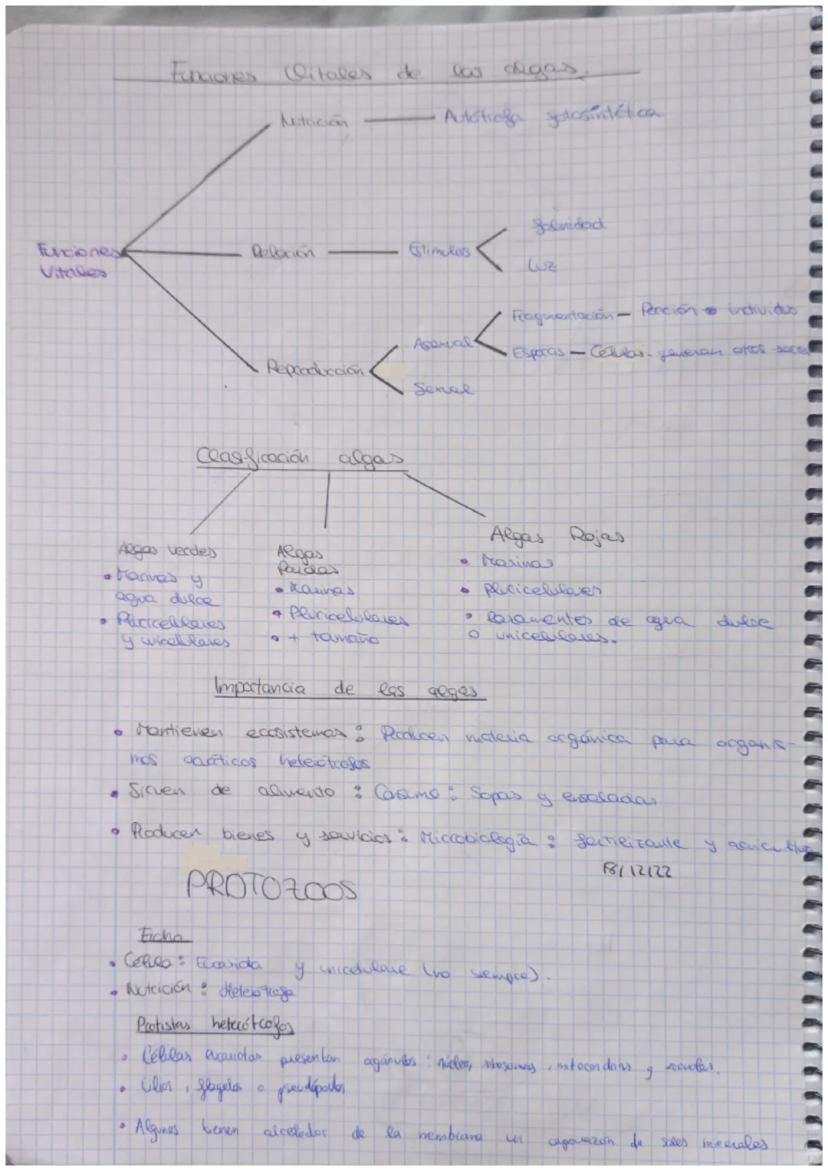 Funciones Vitales de las algas.
Nutrición — Autótrofa fotosintética
Funciones
Vitales
Relación — Estímulos
Salinidad
Luz
Reproducción
Asexual
Fragmentación — Porción → individuo
Esporas — Células - generan otros seres
Sexual
Clasificación algas
Algas verdes
• Marinas y
agua dulce
• Pluricelulares
y unicelulares
Algas
Pardas
• Marinas
• Pluricelulares
• + tamaño
Algas Rojas
• Marinas
• Pluricelulares
• Raramentes de agua dulce
o unicelulares.
Importancia de las algas
• Mantienen ecosistemas: Producen materia orgánica para organis-
mos acuáticos heterótrofos
• Sirven de alimento: Consumo: Sopas y ensaladas
• Producen bienes y servicios: Microbiología: fertilizante y
18/12/22
PROTOZOOS
Ficha
• Célula: Eucariota y unicelulare (no siempre).
• Nutrición: Heterótrofa
Protistas heterótrofos
• Células eucariotas presentan orgánulos: núcleo, ribosomas, mitocondrias y vacuolas.
• Cilios, flagelos o pseudópodos
• Algunos tienen alrededor de la membrana un caparazón de sales minerales